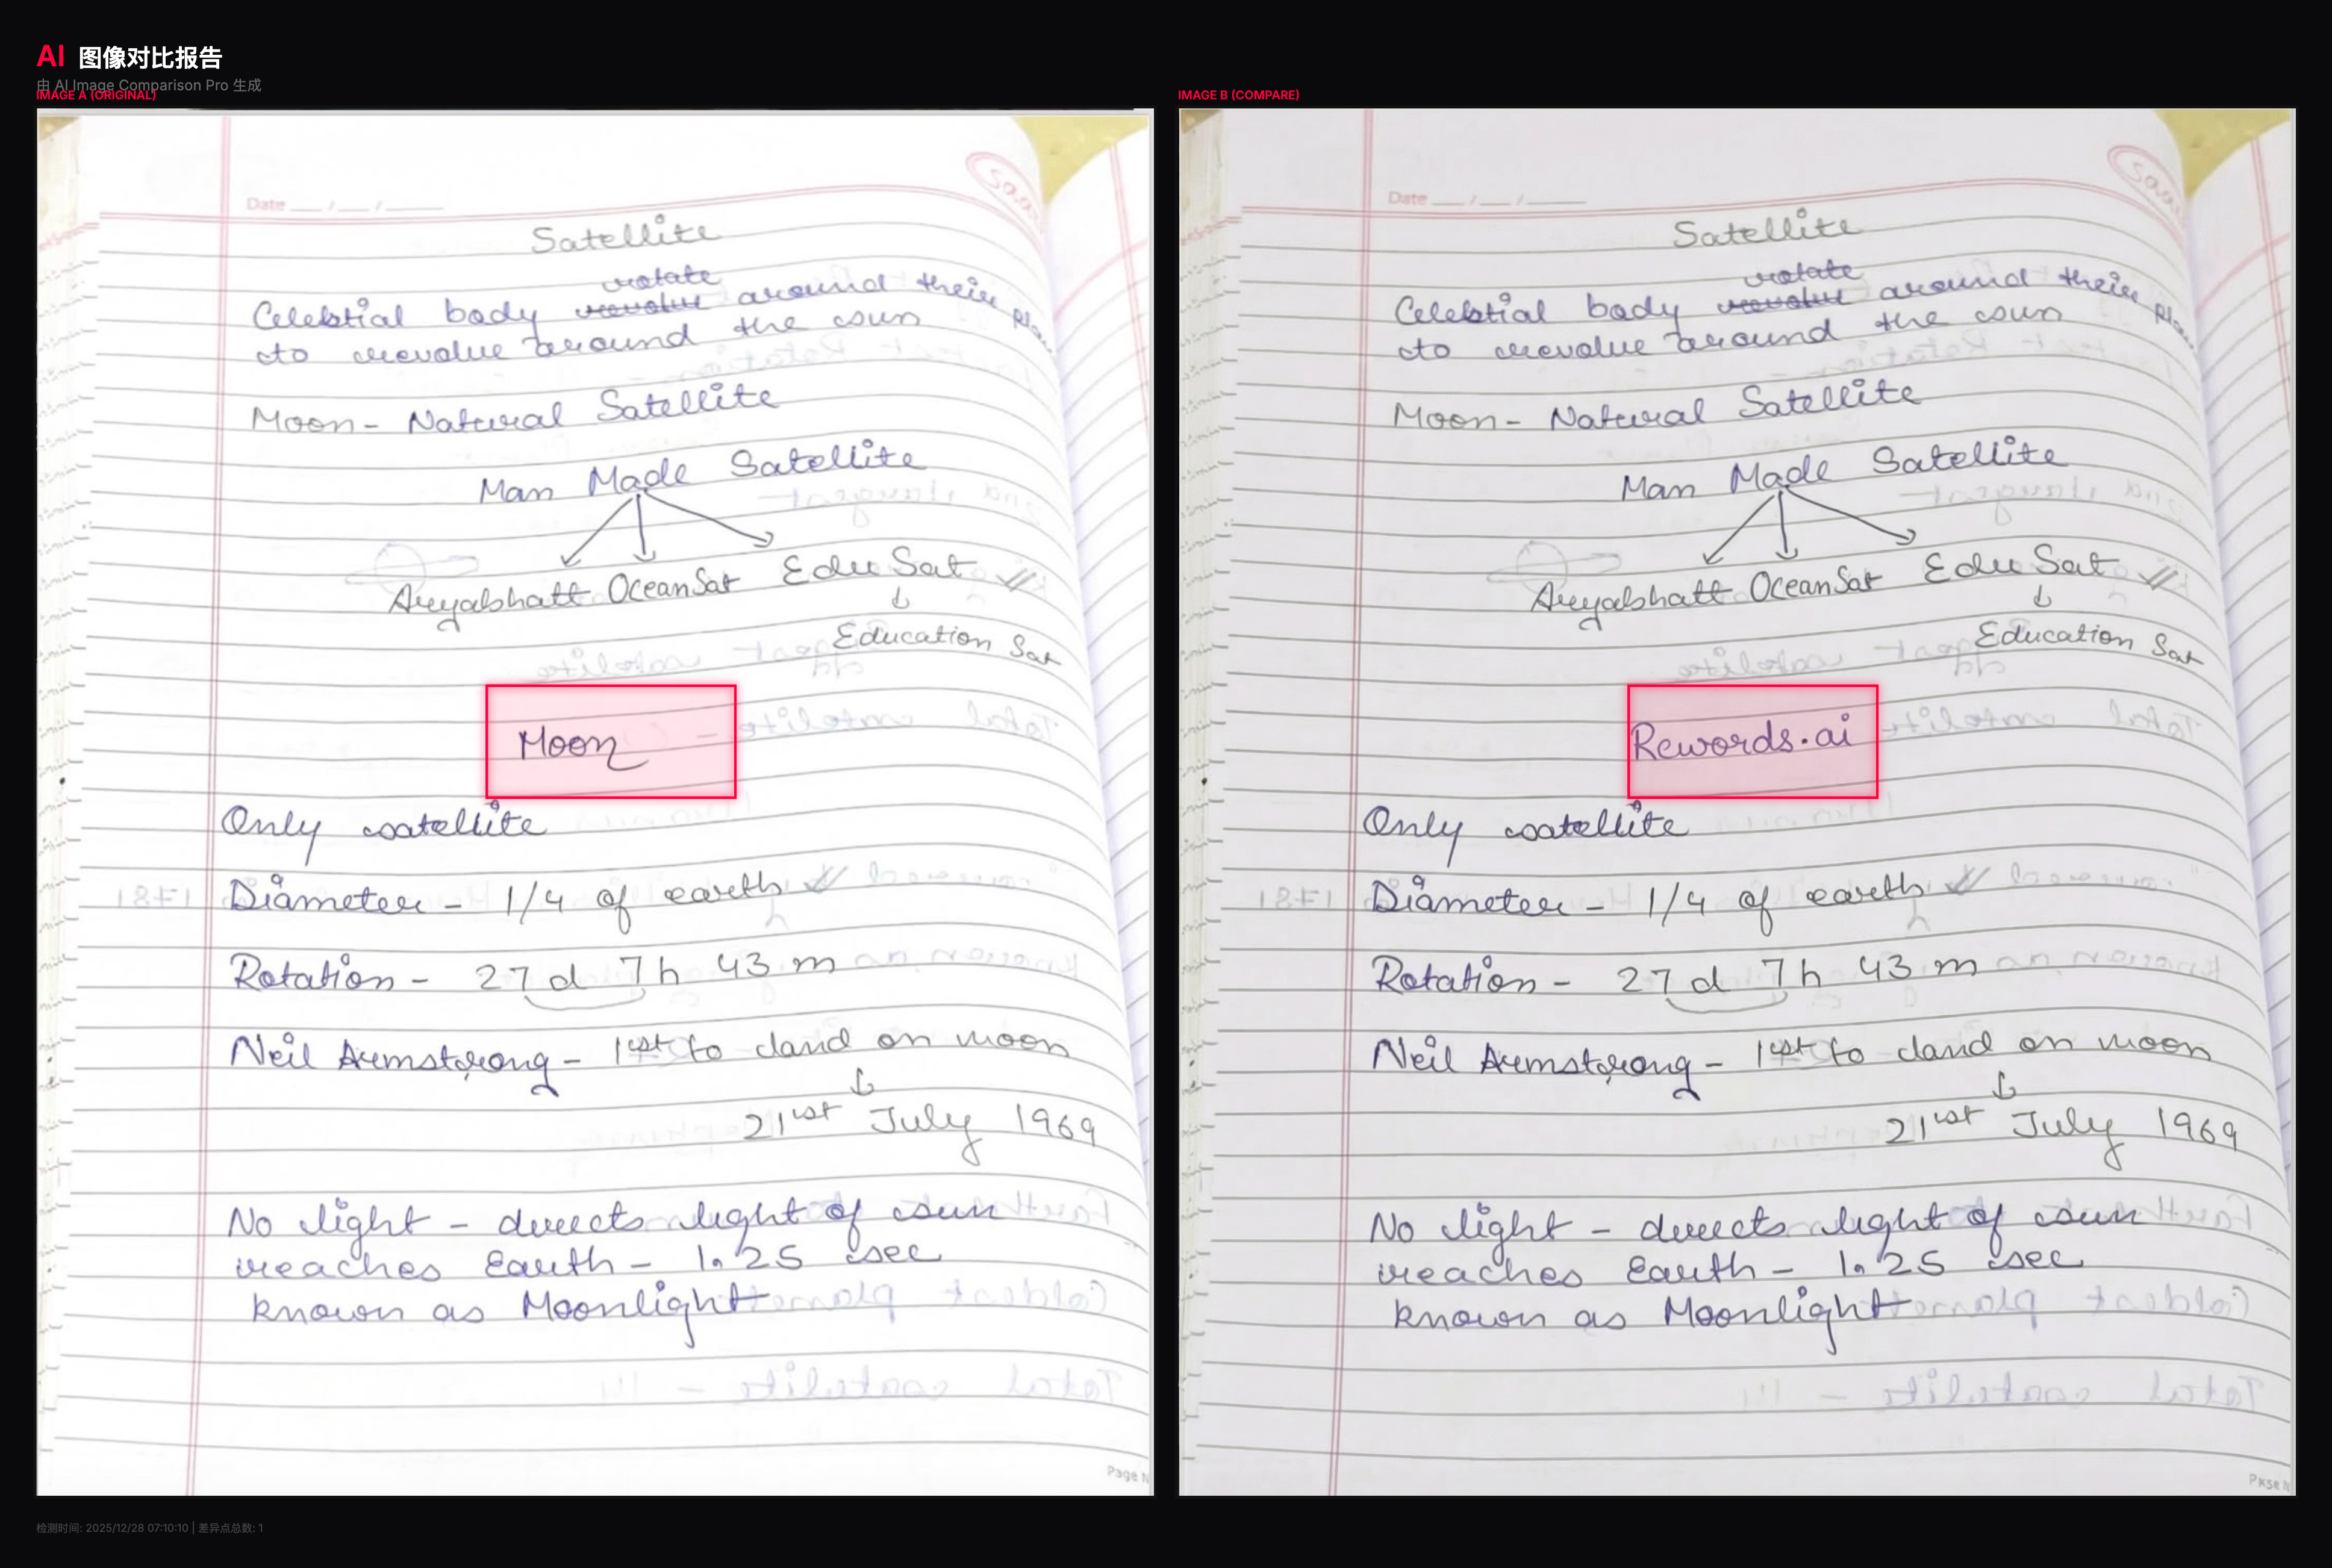 AI 图像对比报告
由 AI Image Comparison Pro 生成
IMAGE A (ORIGINAL)
Date __ / __ / ____
Satellite
rotate
Celebtial body revolve around their
to revolve around the sun
Moon - Natural Satellite
Man Made Satellite
Aryabhatt OceanSat Edu Sat
↓
Education Sat
Moon
Only satellite
Diameter - 1/4 of earth
Rotation - 27 d 7 h 43 m
Neil Armstrong - 1st to land on moon
↓
21st July 1969
No light - directs light of sun
reaches Earth - 1.25 sec
known as Moonlight
Page N
IMAGE B (COMPARE)
Date __ / __ / ____
Satellite
rotate
Celebtial body revolve around their
to revolve around the sun
Moon - Natural Satellite
Man Made Satellite
Aryabhatt OceanSat Edu Sat
↓
Education Sat
Rewords.ai
Only satellite
Diameter - 1/4 of earth
Rotation - 27 d 7 h 43 m
Neil Armstrong - 1st to land on moon
↓
21st July 1969
No light - directs light of sun
reaches Earth - 1.25 sec
known as Moonlight
检测时间: 2025/12/28 07:10:10 | 差异点总数: 1